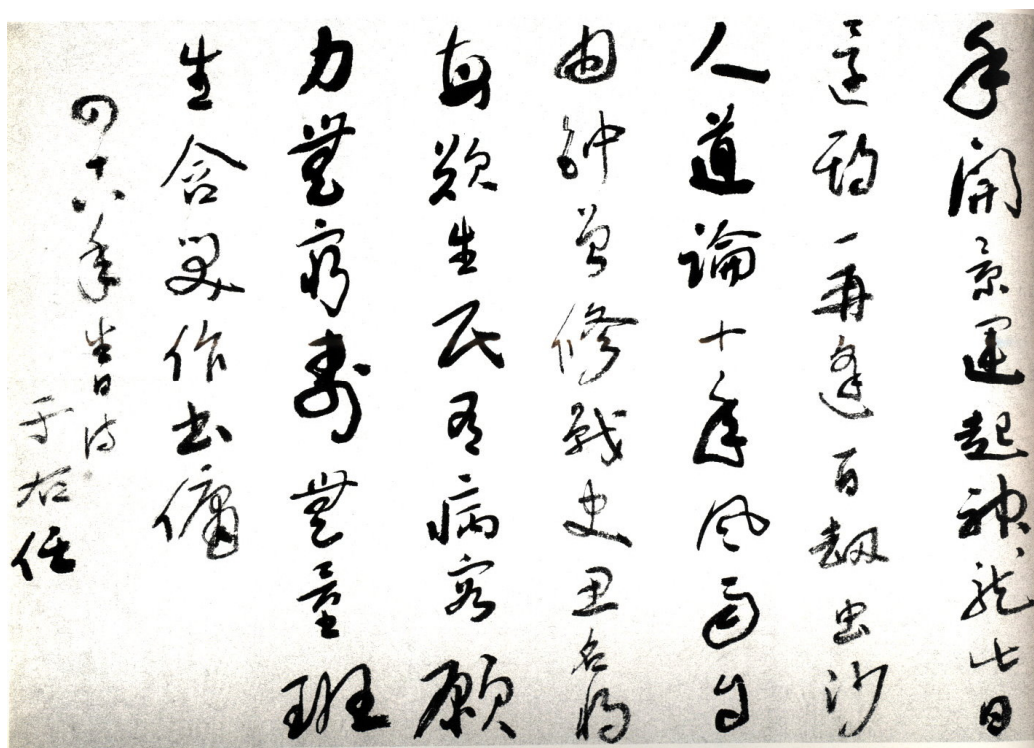 年開景運起神龍七日
還一再逢百劫蟲沙
人道論十年風雨自
由鐘曾修戰史思名將
每歎生民有病容願
力無窮壽無量班
生含笑作書傭
四十六年生日詩
于右任